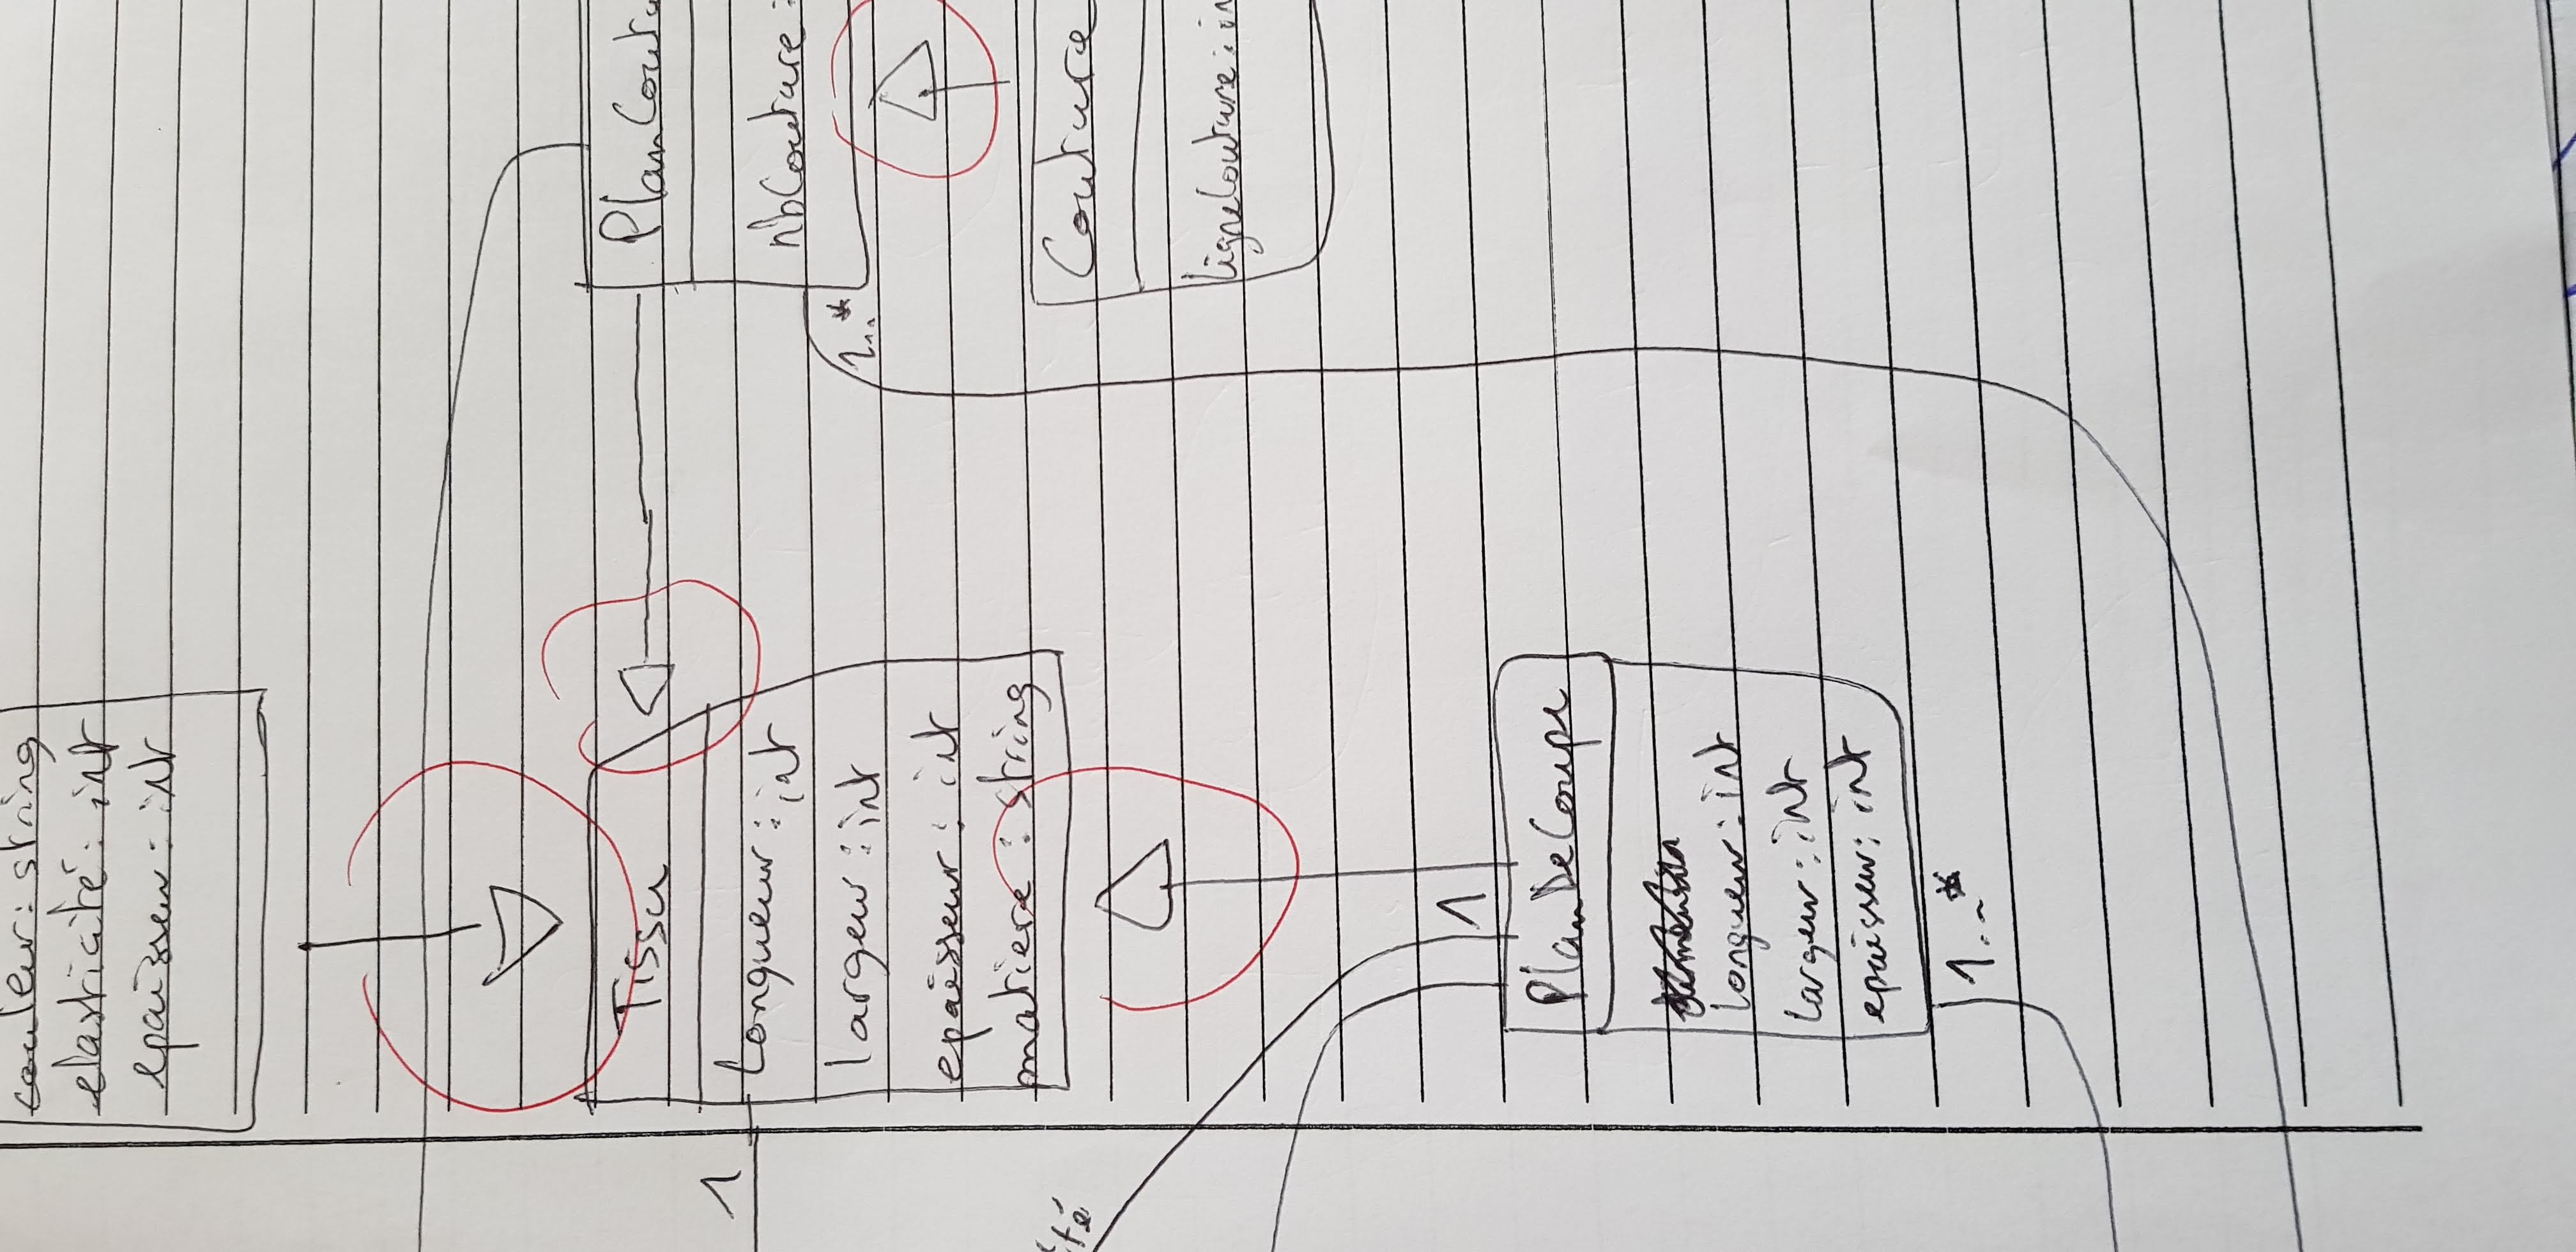 couleur: string
elasticité: int
epaisseur: int
Tissu
Longueur : int
largeur : int
epaisseur : int
matiere : string
1
PlanCoutu
nbCouture :
1..*
Couture
ligneCouture: in
PlanDeCoupe
longueur: int
largeur: int
epaisseur: int
1
1..*
té